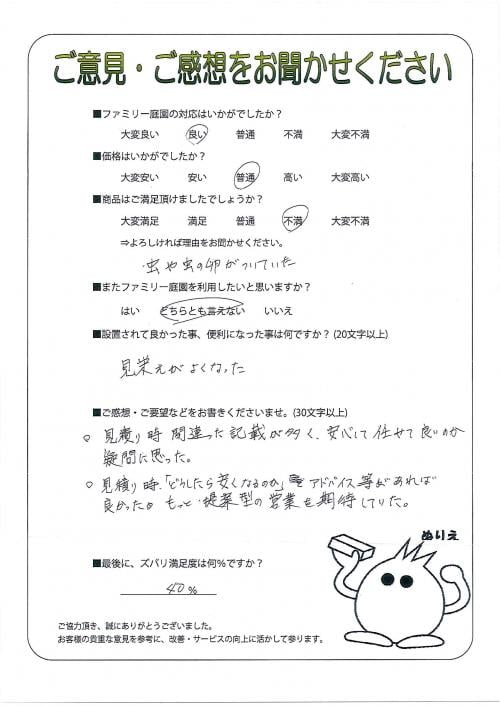 ご意見・ご感想をお聞かせください
■ファミリー庭園の対応はいかがでしたか?
大変良い 良い 普通 不満 大変不満
■価格はいかがでしたか?
大変安い 安い 普通 高い 大変高い
■商品はご満足頂けましたでしょうか?
大変満足 満足 普通 不満 大変不満
⇒よろしければ理由をお聞かせください。
虫や虫の卵がついていた
■またファミリー庭園を利用したいと思いますか?
はい どちらとも言えない いいえ
■設置されて良かった事、便利になった事は何ですか? (20文字以上)
見栄えがよくなった
■ご感想・ご要望などをお書きくださいませ。(30文字以上)
○見積り時 間違った記載が多く、安心して任せて良いのか
疑問に思った。
○見積り時、「どうしたら安くなるのか」を アドバイス等があれば
良かった。もっと提案型の営業を期待していた。
■最後に、ズバリ満足度は何%ですか?
40%
ぬりえ
ご協力頂き、誠にありがとうございました。
お客様の貴重な意見を参考に、改善・サービスの向上に活かして参ります。